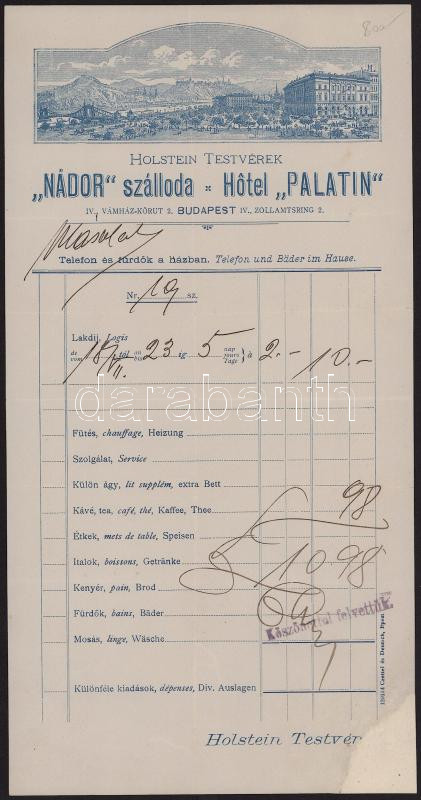 800
HOLSTEIN TESTVÉREK
„NÁDOR“ szálloda × Hôtel „PALATIN“
IV., VÁMHÁZ-KÖRUT 2. BUDAPEST IV., ZOLLAMTSRING 2.
Másolat
Telefon és fürdők a házban. Telefon und Bäder im Hause.
Nr. 19 sz.
Lakdij, Logis
de vom 18/VII. tól au bis 23 ig 5 nap jours Tage } à 2.- 10.-
darabanth
Fütés, chauffage, Heizung
Szolgálat, Service
Külön ágy, lit supplém, extra Bett
Kávé, tea, café, thé, Kaffee, Thee 98
Étkek, mets de table, Speisen
Italok, boissons, Getränke 10.98
Kenyér, pain, Brod
Fürdők, bains, Bäder
Köszönettel felvettük.
Mosás, linge, Wäsche
Különféle kiadások, dépenses, Div. Auslagen
Holstein Testvér